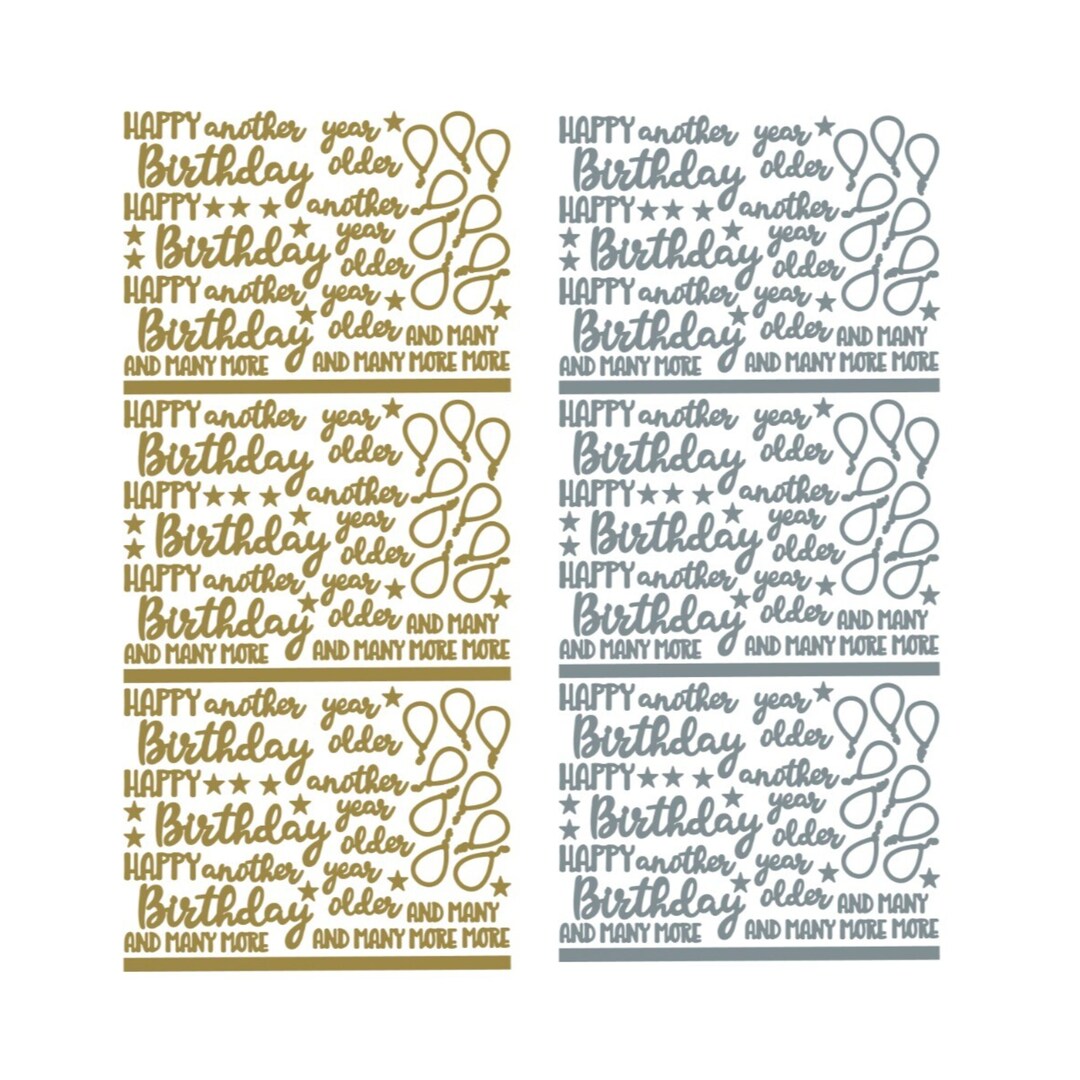 HAPPY another year
Birthday older
HAPPY another
Birthday year
older
HAPPY another year
Birthday older AND MANY
AND MANY MORE AND MANY MORE MORE
HAPPY another year
Birthday older
HAPPY another
Birthday year
older
HAPPY another year
Birthday older AND MANY
AND MANY MORE AND MANY MORE MORE
HAPPY another year
Birthday older
HAPPY another
Birthday year
older
HAPPY another year
Birthday older AND MANY
AND MANY MORE AND MANY MORE MORE
HAPPY another year
Birthday older
HAPPY another
Birthday year
older
HAPPY another year
Birthday older AND MANY
AND MANY MORE AND MANY MORE MORE
HAPPY another year
Birthday older
HAPPY another
Birthday year
older
HAPPY another year
Birthday older AND MANY
AND MANY MORE AND MANY MORE MORE
HAPPY another year
Birthday older
HAPPY another
Birthday year
older
HAPPY another year
Birthday older AND MANY
AND MANY MORE AND MANY MORE MORE